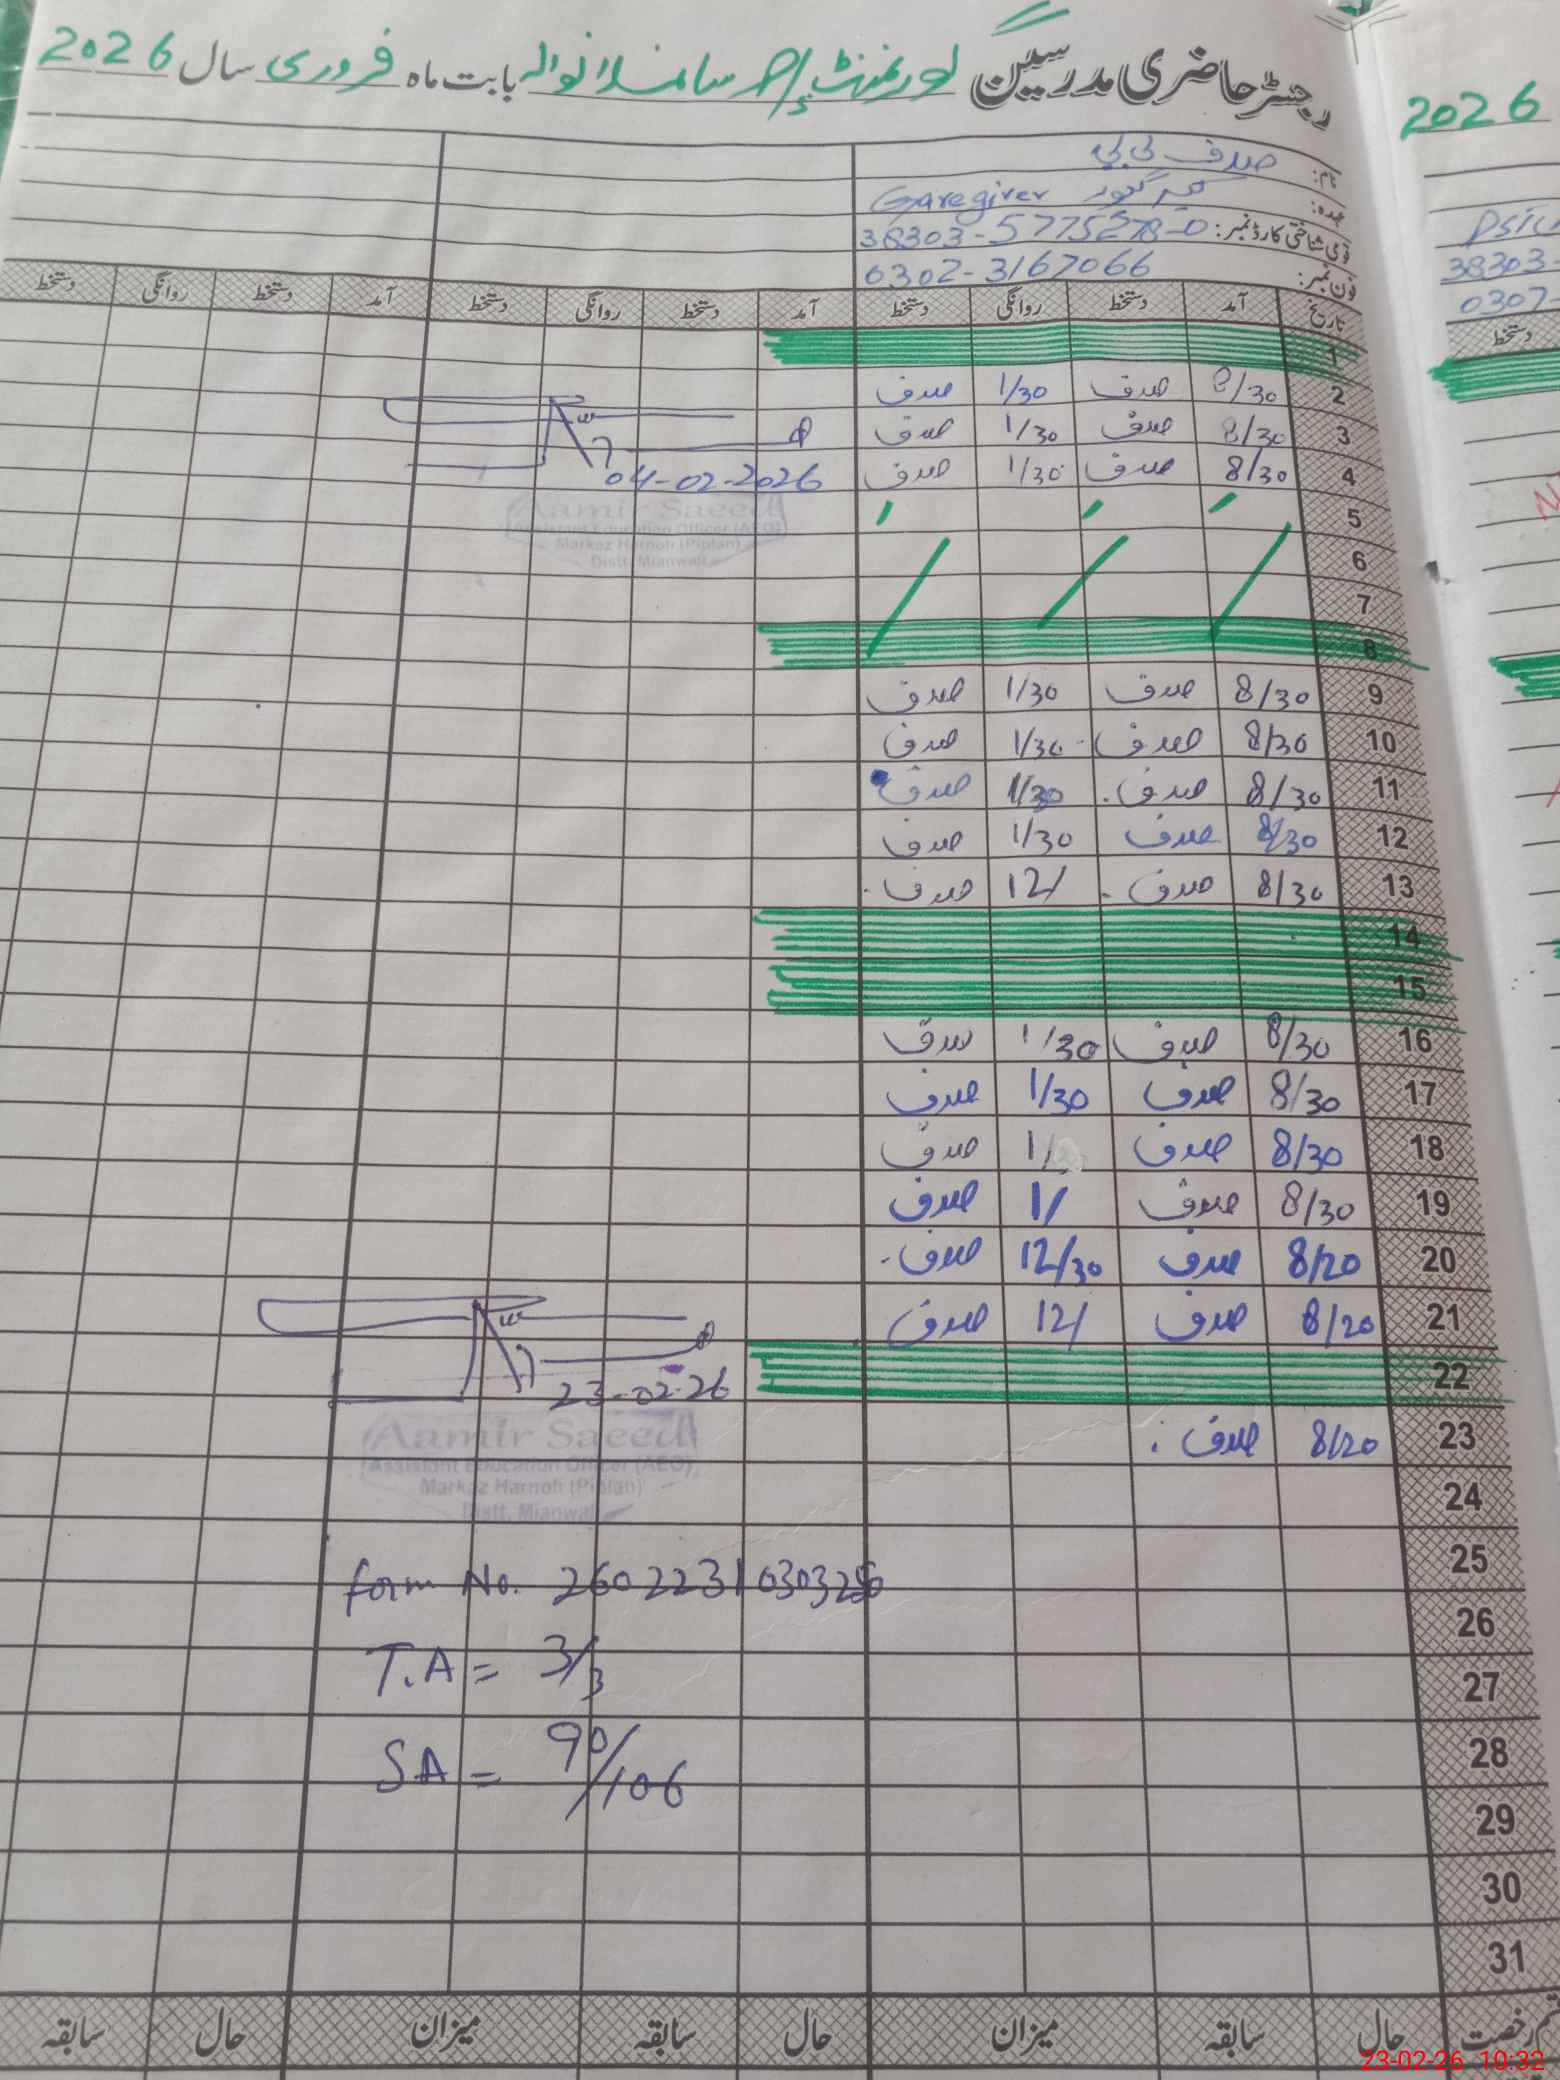 رجسٹر حاضری مدرسین گورنمنٹ بابت ماہ فروری سال 2026
2026
نام: صدف بی بی
عہدہ: کیئر گیور Caregiver
قومی شناختی کارڈ نمبر: 38303-5775278-0
فون نمبر: 0302-3167066
38303-
0307-
تاریخ آمد دستخط روانگی دستخط آمد دستخط روانگی دستخط آمد دستخط روانگی دستخط
دستخط
1
2 8/30 صدف 1/30 صدف
3 8/30 صدف 1/30 صدف
4 8/30 صدف 1/30 صدف
04-02-2026
Aamir Saeed
Assistant Education Officer (AEO)
Markaz Harnoli (Piplan)
Distt. Mianwali
5
6
7
8
9 8/30 صدف 1/30 صدف
10 8/30 صدف 1/30 صدف
11 8/30 صدف 1/30 صدف
12 8/30 صدف 1/30 صدف
13 8/30 صدف 12/ صدف
14
15
16 8/30 صدف 1/30 صدف
17 8/30 صدف 1/30 صدف
18 8/30 صدف 1/ صدف
19 8/30 صدف 1/ صدف
20 8/20 صدف 12/30 صدف
21 8/20 صدف 12/ صدف
22
23-02-26
23 8/20 صدف
Aamir Saeed
(Assistant Education Officer (AEO)
Markaz Harnoli (Piplan)
Distt. Mianwali
24
25
form No. 260223103032
26
27
T.A = 3/3
28
SA = 90/106
29
30
31
رخصت حال سابقہ میزان حال سابقہ میزان حال سابقہ
23-02-26 10:32